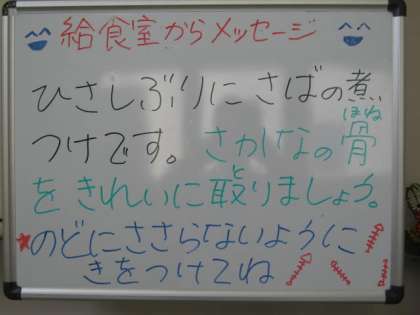 給食室からメッセージ
ひさしぶりにさばの煮
ほね
つけです。さかなの骨
と
をきれいに取りましょう。
のどにささらないように
きをつけてね